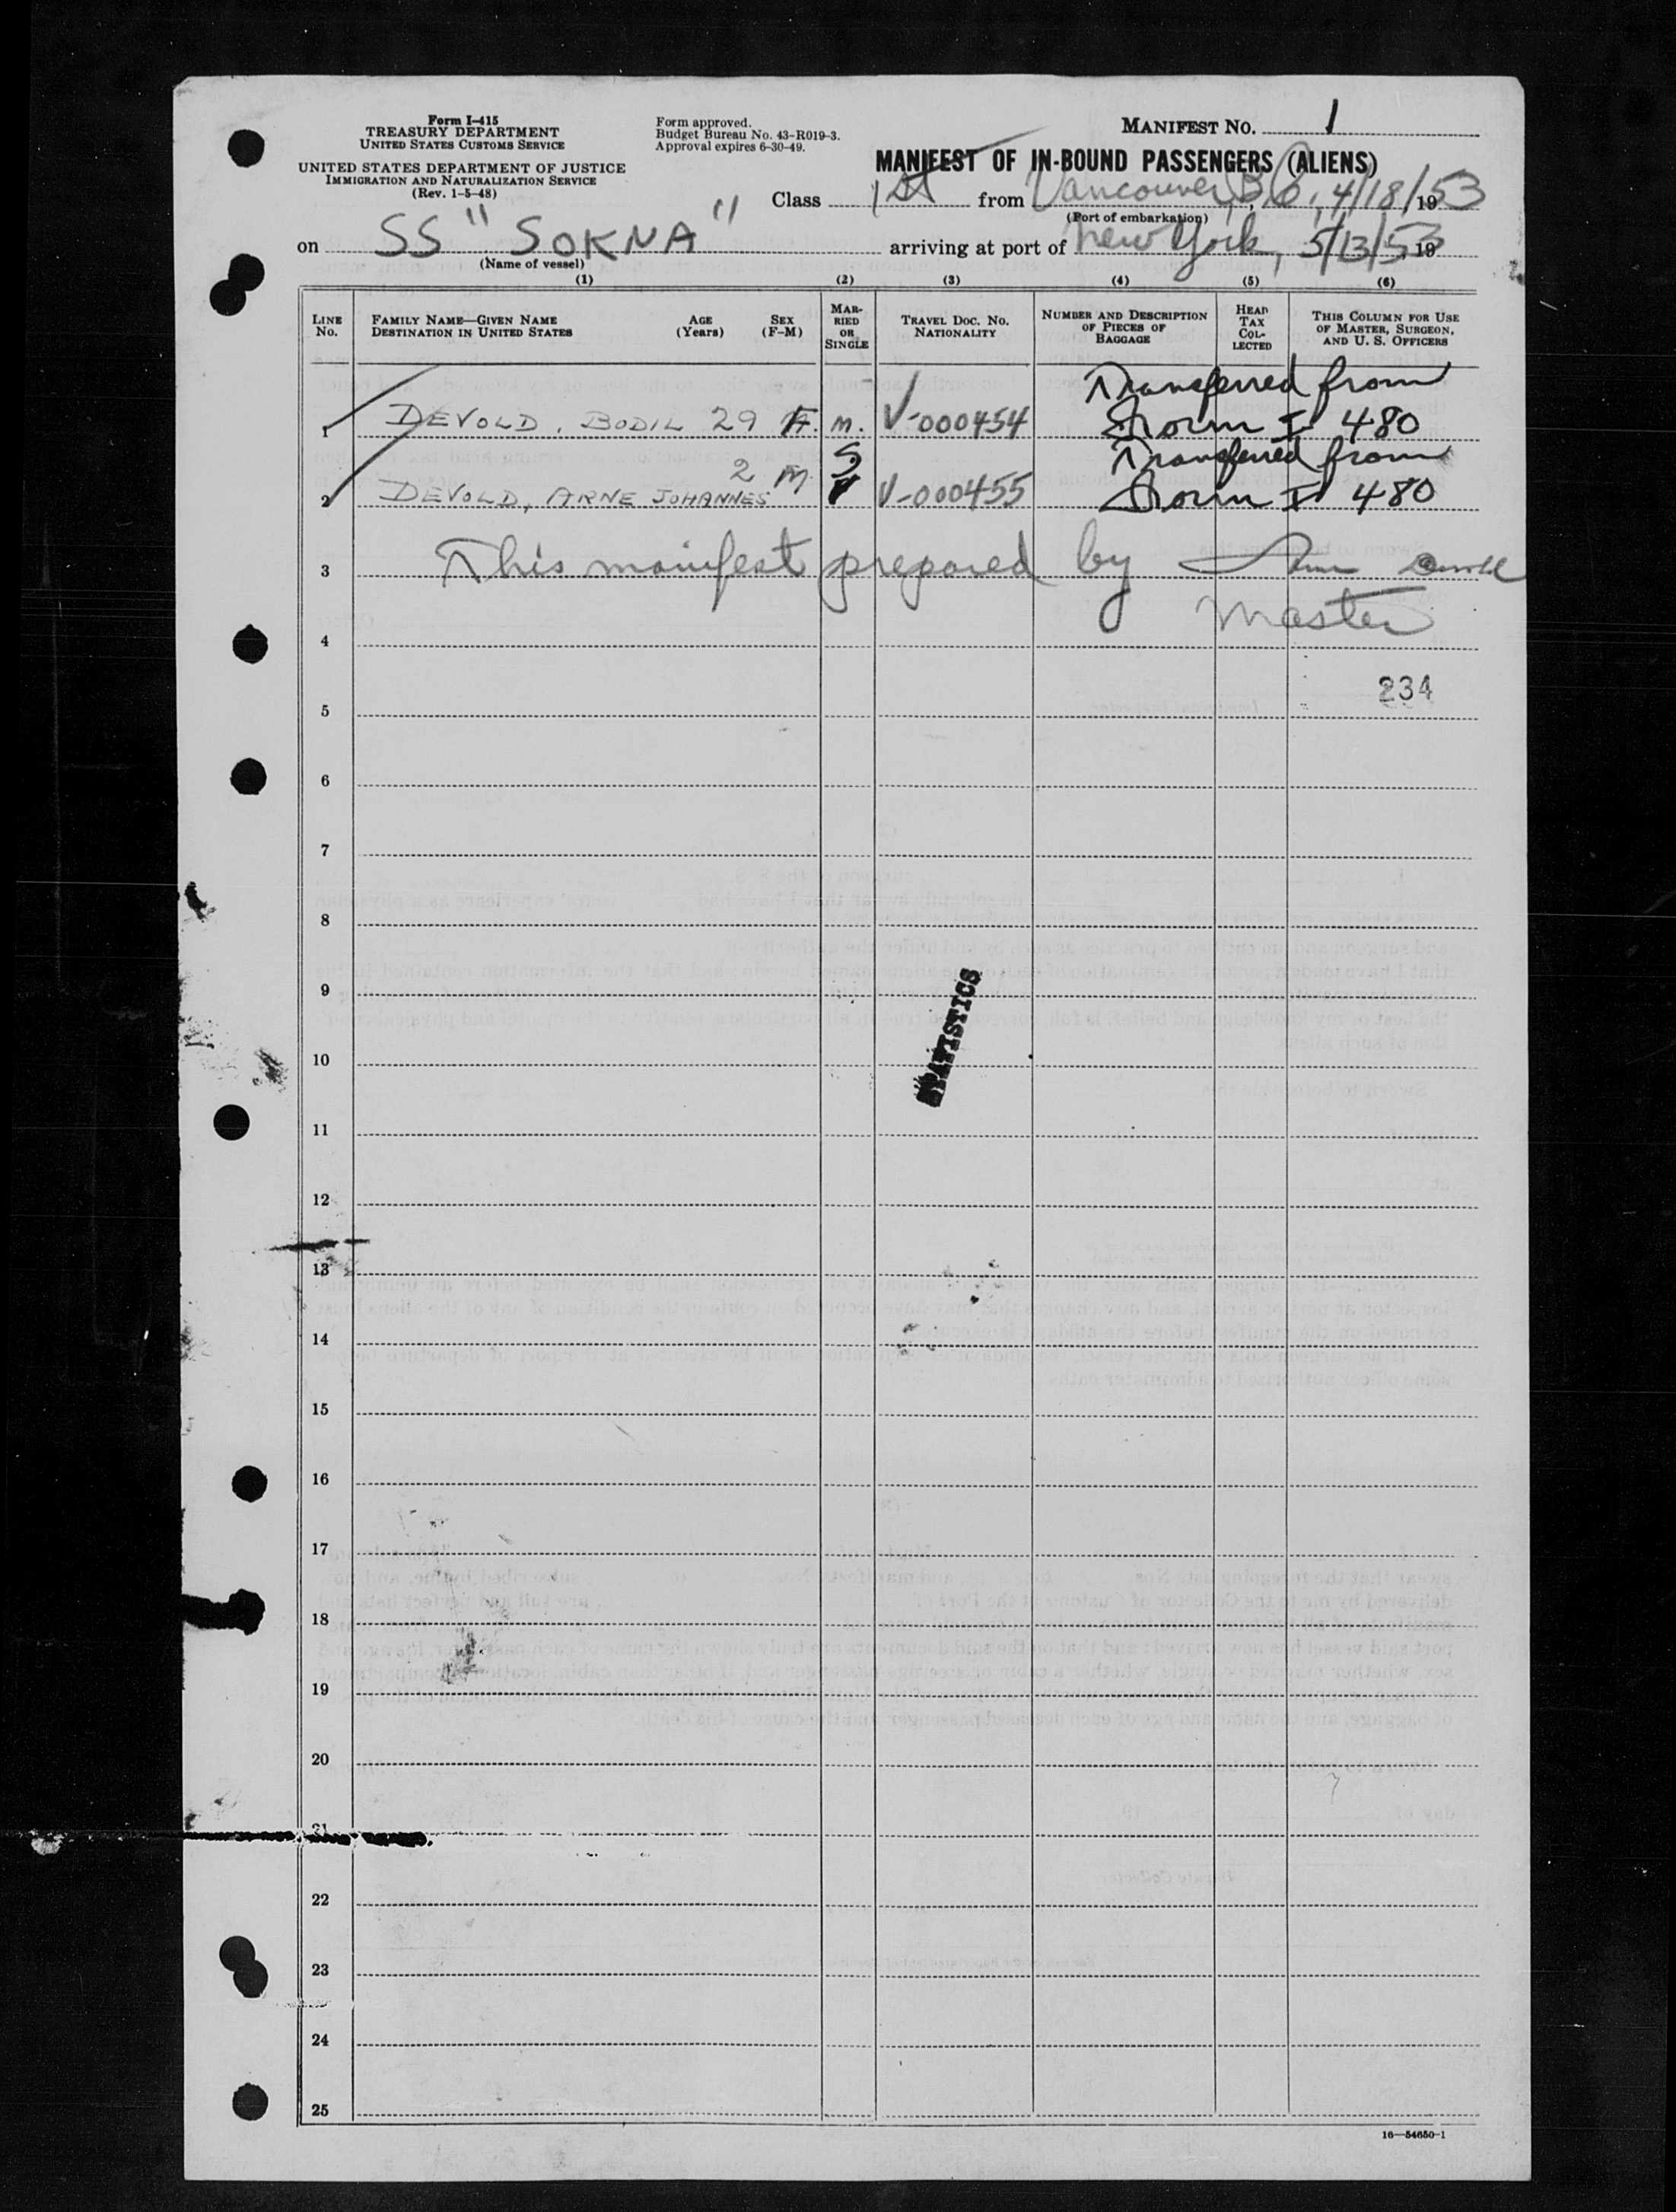 Form I-415
TREASURY DEPARTMENT
UNITED STATES CUSTOMS SERVICE
UNITED STATES DEPARTMENT OF JUSTICE
IMMIGRATION AND NATURALIZATION SERVICE
(Rev. 1-5-48)
Form approved.
Budget Bureau No. 43-R019-3.
Approval expires 6-30-49.
MANIFEST NO. 1
MANIFEST OF IN-BOUND PASSENGERS (ALIENS)
Class 1st from Vancouver, B.C., 4/18/, 1953
(Port of embarkation)
on SS "SOKNA" arriving at port of New York, 5/13/53, 19
(Name of vessel)
(1) (2) (3) (4) (5) (6)
LINE No.
FAMILY NAME—GIVEN NAME
DESTINATION IN UNITED STATES
AGE (Years)
SEX (F-M)
MARRIED OR SINGLE
TRAVEL DOC. NO.
NATIONALITY
NUMBER AND DESCRIPTION OF PIECES OF BAGGAGE
HEAD TAX COLLECTED
THIS COLUMN FOR USE OF MASTER, SURGEON, AND U. S. OFFICERS
Transferred from
1 DEVOLD, BODIL 29 F. m. V-000454 Form I 480
Transferred from
2 DEVOLD, ARNE JOHANNES 2 M S V-000455 Form I 480
3 This manifest prepared by
Master
4
234
5
6
7
8
9
STATISTICS
10
11
12
13
14
15
16
17
18
19
20
21
22
23
24
25
16—54650-1